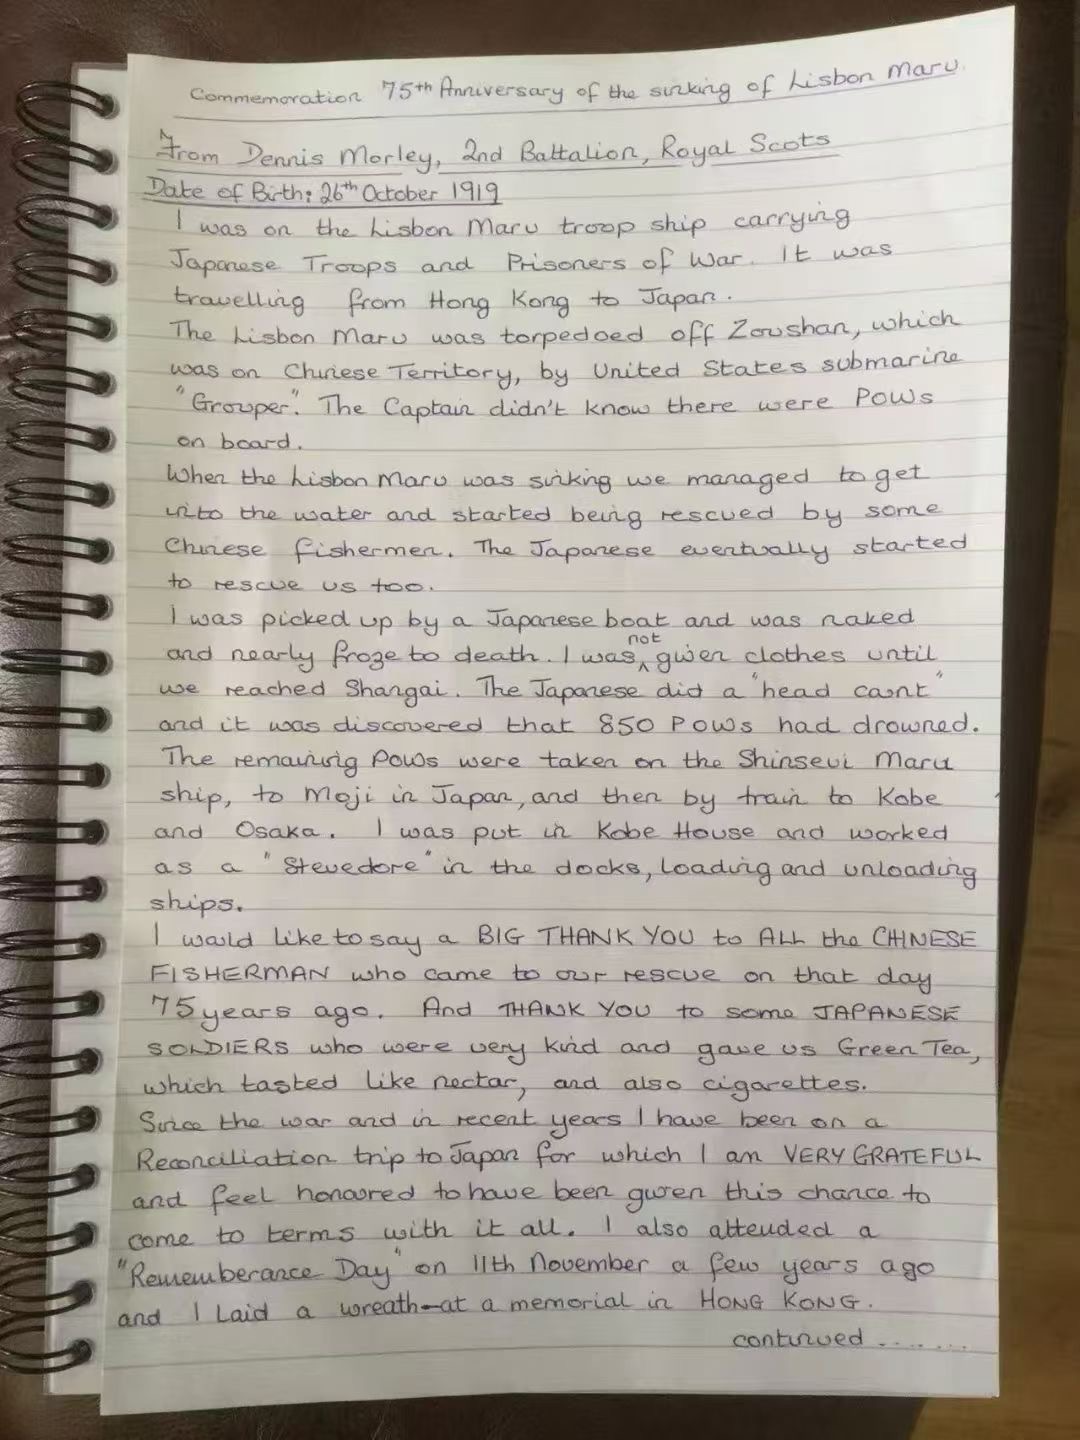 Commemoration 75th Anniversary of the sinking of Lisbon Maru.
From Dennis Morley, 2nd Battalion, Royal Scots
Date of Birth: 26th October 1919
I was on the Lisbon Maru troop ship carrying
Japanese Troops and Prisoners of War. It was
travelling from Hong Kong to Japan.
The Lisbon Maru was torpedoed off Zoushan, which
was on Chinese Territory, by United States submarine
"Grouper". The Captain didn't know there were POWs
on board.
When the Lisbon Maru was sinking we managed to get
into the water and started being rescued by some
Chinese fishermen. The Japanese eventually started
to rescue us too.
I was picked up by a Japanese boat and was naked
and nearly froze to death. I was not given clothes until
we reached Shangai. The Japanese did a "head count"
and it was discovered that 850 POWs had drowned.
The remaining POWs were taken on the Shinseui Maru
ship, to Moji in Japan, and then by train to Kobe
and Osaka. I was put in Kobe House and worked
as a "Stevedore" in the docks, loading and unloading
ships.
I would like to say a BIG THANK YOU to ALL the CHINESE
FISHERMAN who came to our rescue on that day
75 years ago. And THANK YOU to some JAPANESE
SOLDIERS who were very kind and gave us Green Tea,
which tasted like nectar, and also cigarettes.
Since the war and in recent years I have been on a
Reconciliation trip to Japan for which I am VERY GRATEFUL
and feel honoured to have been given this chance to
come to terms with it all. I also attended a
"Rememberance Day" on 11th November a few years ago
and I laid a wreath-at a memorial in HONG KONG.
continued .......